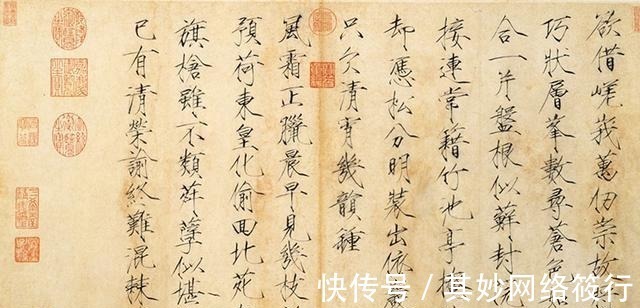 欲借嵯峩萬仞崇故
巧狀層峯數尋蒼
合一片盤根似蘚封
接連常籍竹池亭
却憑松分明裝出依
只欠清宵幾韻鍾
風霜正臘晨早見幾枝
預荷東皇化偷回北苑
旗槍雖不類荂孽似堪
已有清榮諭終難混棘
快传号 / 其妙网络筱行